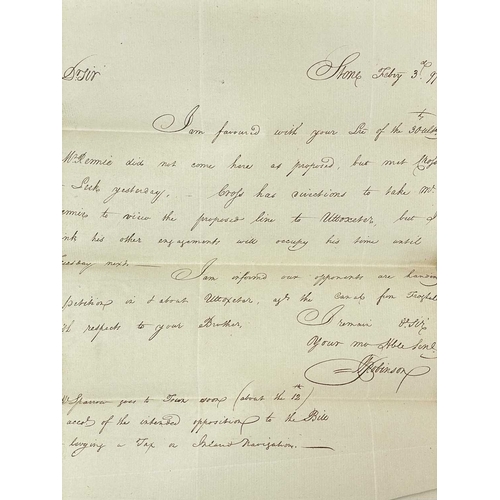 Dr Sir Stone Febry 3d. 97
I am favour'd with your Lre of the 30th Ulto
Mr Rennie did not come here as proposed, but met Cross
Leek yesterday. - Cross has directions to take Mr
ennie to view the proposed line to Uttoxeter, but I
nk his other engagements will occupy his time until
uesday next -
I am informed our opponents are handing
petition in & about Uttoxeter, agt the Canal from Froghall
th respects to your Brother,
I remain Dr Sir
Your mo Hble Servt
Robinson
Mr Sparrow goes to Town soon (about the 12th)
accot of the intended opposition to the Bill
levying a Tax on Inland Navigation. -